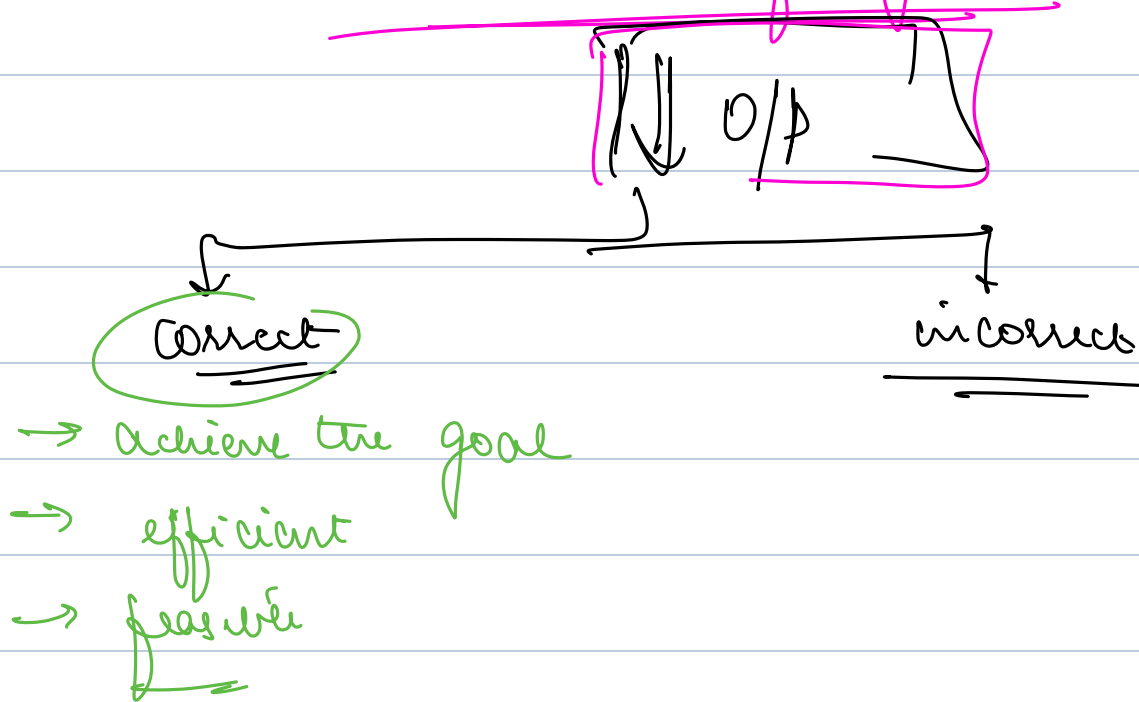 O/P
correct
incorrect
→ achieve the goal
→ efficient
→ feasible